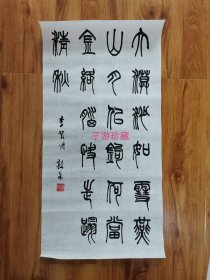 大漠沙如雪燕
山月似鉤何當
金絡腦快走踏
清秋
李賀詩
子游珍藏